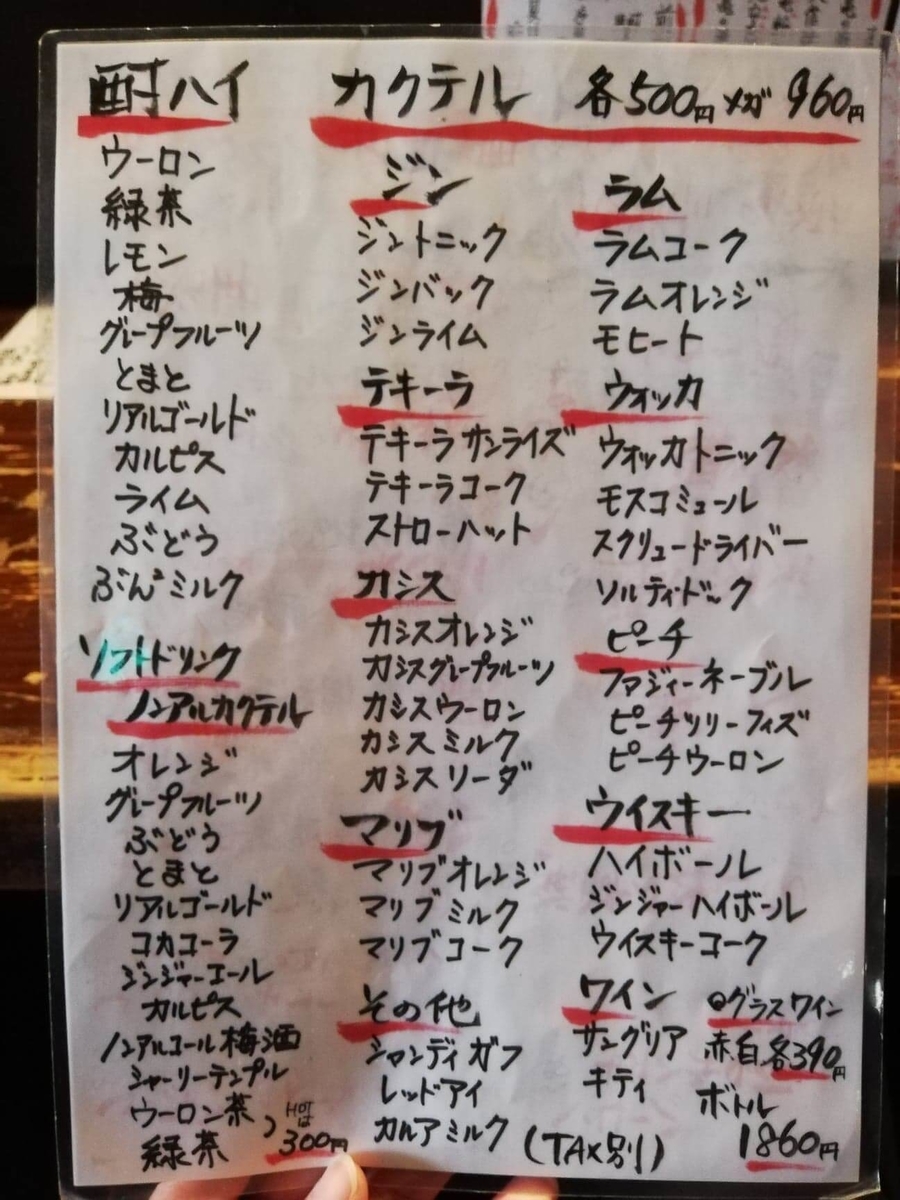 酎ハイ
ウーロン
緑茶
レモン
梅
グレープフルーツ
とまと
リアルゴールド
カルピス
ライム
ぶどう
ぶんぶんミルク
ソフトドリンク
ノンアルカクテル
オレンジ
グレープフルーツ
ぶどう
とまと
リアルゴールド
コカコーラ
ジンジャーエール
カルピス
ノンアルコール梅酒
シャーリーテンプル
ウーロン茶
緑茶
HOTは
300円
カクテル 各500円 メガ 960円
ジン
ジントニック
ジンバック
ジンライム
テキーラ
テキーラサンライズ
テキーラコーク
ストローハット
カシス
カシスオレンジ
カシスグレープフルーツ
カシスウーロン
カシスミルク
カシスソーダ
マリブ
マリブオレンジ
マリブミルク
マリブコーク
その他
シャンディガフ
レッドアイ
カルアミルク
ラム
ラムコーク
ラムオレンジ
モヒート
ウォッカ
ウォッカトニック
モスコミュール
スクリュードライバー
ソルティドック
ピーチ
ファジィーネーブル
ピーチツリーフィズ
ピーチウーロン
ウイスキー
ハイボール
ジンジャーハイボール
ウイスキーコーク
ワイン
サングリア
キティ
グラスワイン
赤白各390円
ボトル
1860円
(TAX別)